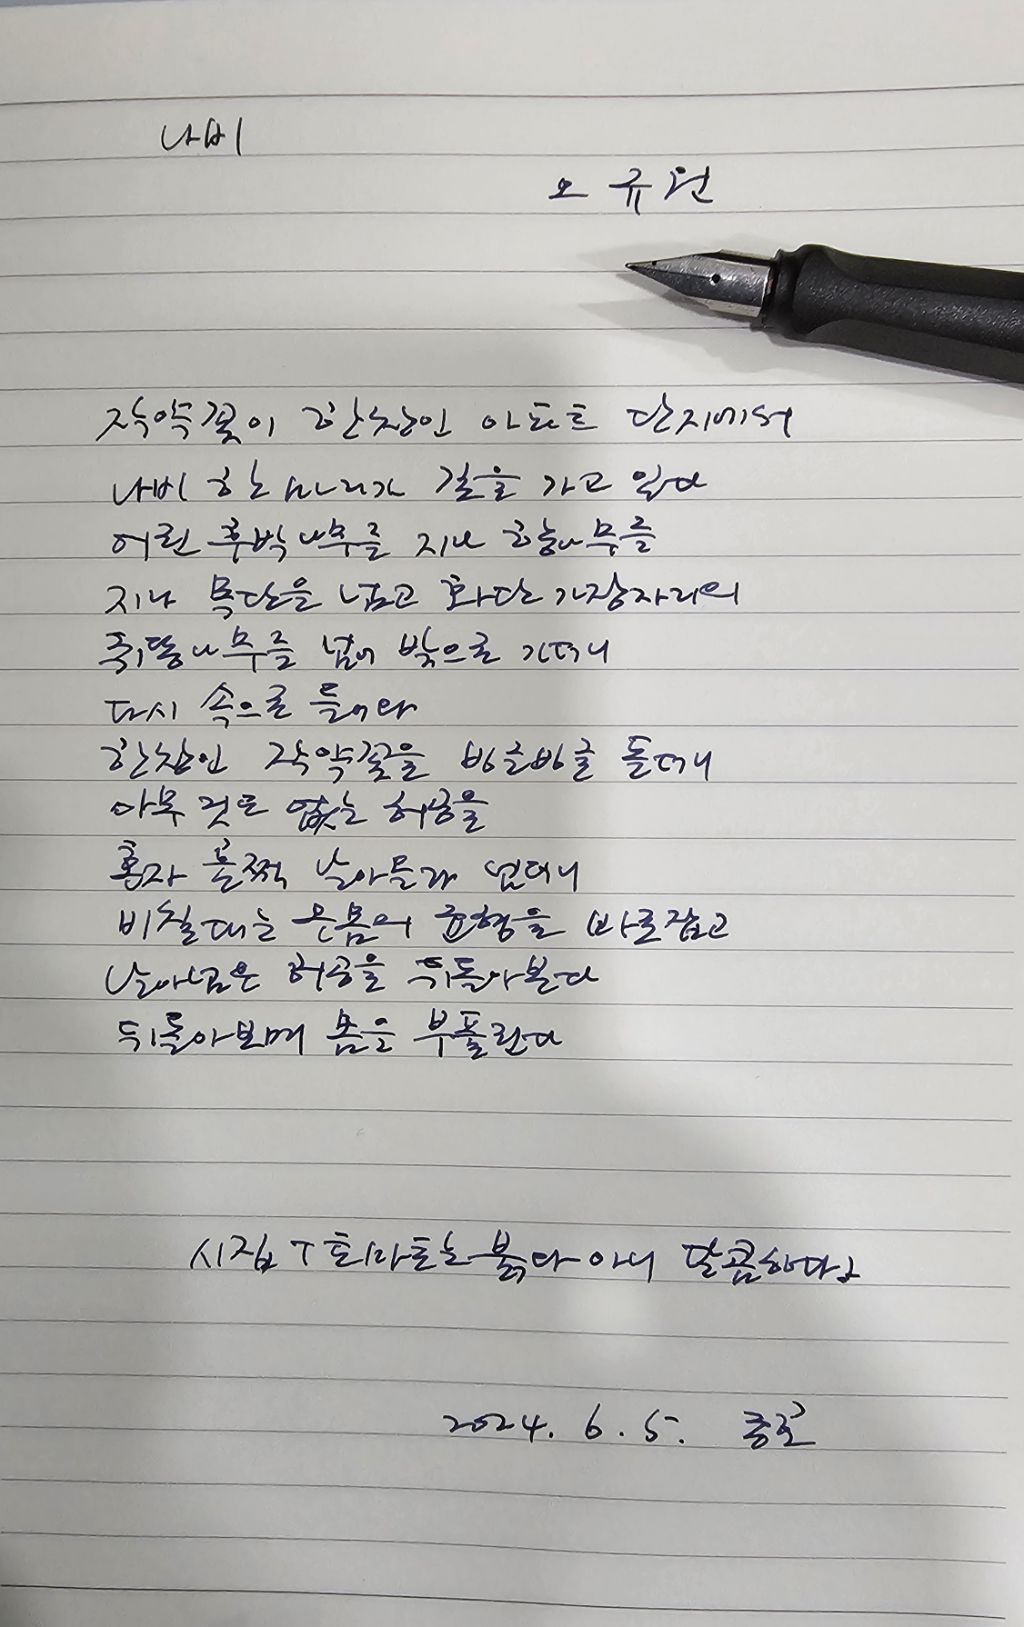 나비
오규원
작약꽃이 한창인 아파트 단지에서
나비 한 마리가 길을 가고 있다
어린 후박나무를 지나 향나무를
지나 목단을 넘고 화단 가장자리의
쥐똥나무를 넘어 밖으로 가더니
다시 속으로 들어와
한창인 작약꽃을 빙글빙글 돌더니
아무 것도 없는 허공을
혼자 훌쩍 날아올라 넘더니
비칠대는 온몸의 균형을 바로잡고
날아넘은 허공을 뒤돌아본다
뒤돌아보며 몸을 부풀린다
시집 「토마토는 붉다 아니 달콤하다」
2024. 6. 5.